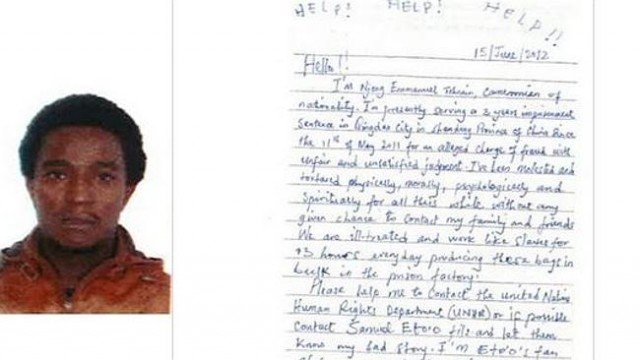 HELP! HELP! HELP!!
15/June/2012
Hello!!
I'm Njong Emmanuel Tohnain, Cameroonian of
nationality. I'm presently serving a 3 years imprisonment
sentence in Qingdao City in shandong Province of China Since
the 11th of May 2011 for an alleged charge of fraud with
unfair and unsatisfied judgment. I've been molested and
tortured physically, morally, psychologically and
Spiritually for all this while without any
given chance to contact my family and friends
We are ill-treated and work like slaves for
13 hours everyday producing these bags in
bulk in the prison factory.
Please help me to contact the united Nations
Human Rights Department (UNHR) or if possible
contact Samuel Eto'o file and let them
know my bad story. I'm Eto'o's fan